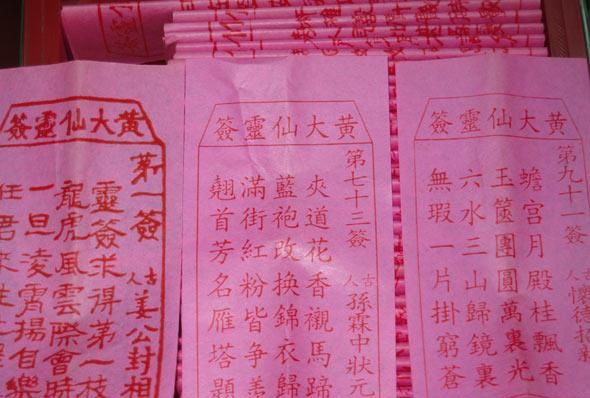 黃大仙靈簽
第一簽
古人姜公封相
靈簽求得第一枝
龍虎風雲際會時
一旦凌霄揚自樂
任君來往
黃大仙靈簽
第七十三簽
古人孫霖中狀元
夾道花香襯馬蹄
藍袍改換錦衣歸
滿街紅粉皆争羨
翹首芳名雁塔題
黃大仙靈簽
第九十一簽
古人懷德招親
蟾宫月殿桂飄香
玉篋團圓萬裏光
六水三山歸鏡裏
無瑕一片掛窮蒼